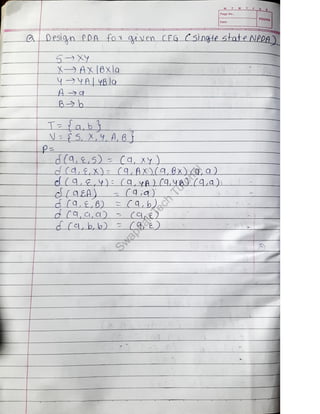 Q Design PDA for given CFG (single state NPDA)
S → XY
X → AX | BX | a
Y → YA | YB | a
A → a
B → b
T = { a, b }
V = { S, X, Y, A, B }
P =
δ (q, ε, S) = (q, XY)
δ (q, ε, X) = (q, AX) (q, BX) (q, a)
δ (q, ε, Y) = (q, YA) (q, YB) (q, a)
δ (q ε A) = (q, a)
δ (q, ε, B) = (q, b)
δ (q, a, a) = (q, ε)
δ (q, b, b) = (q, ε)